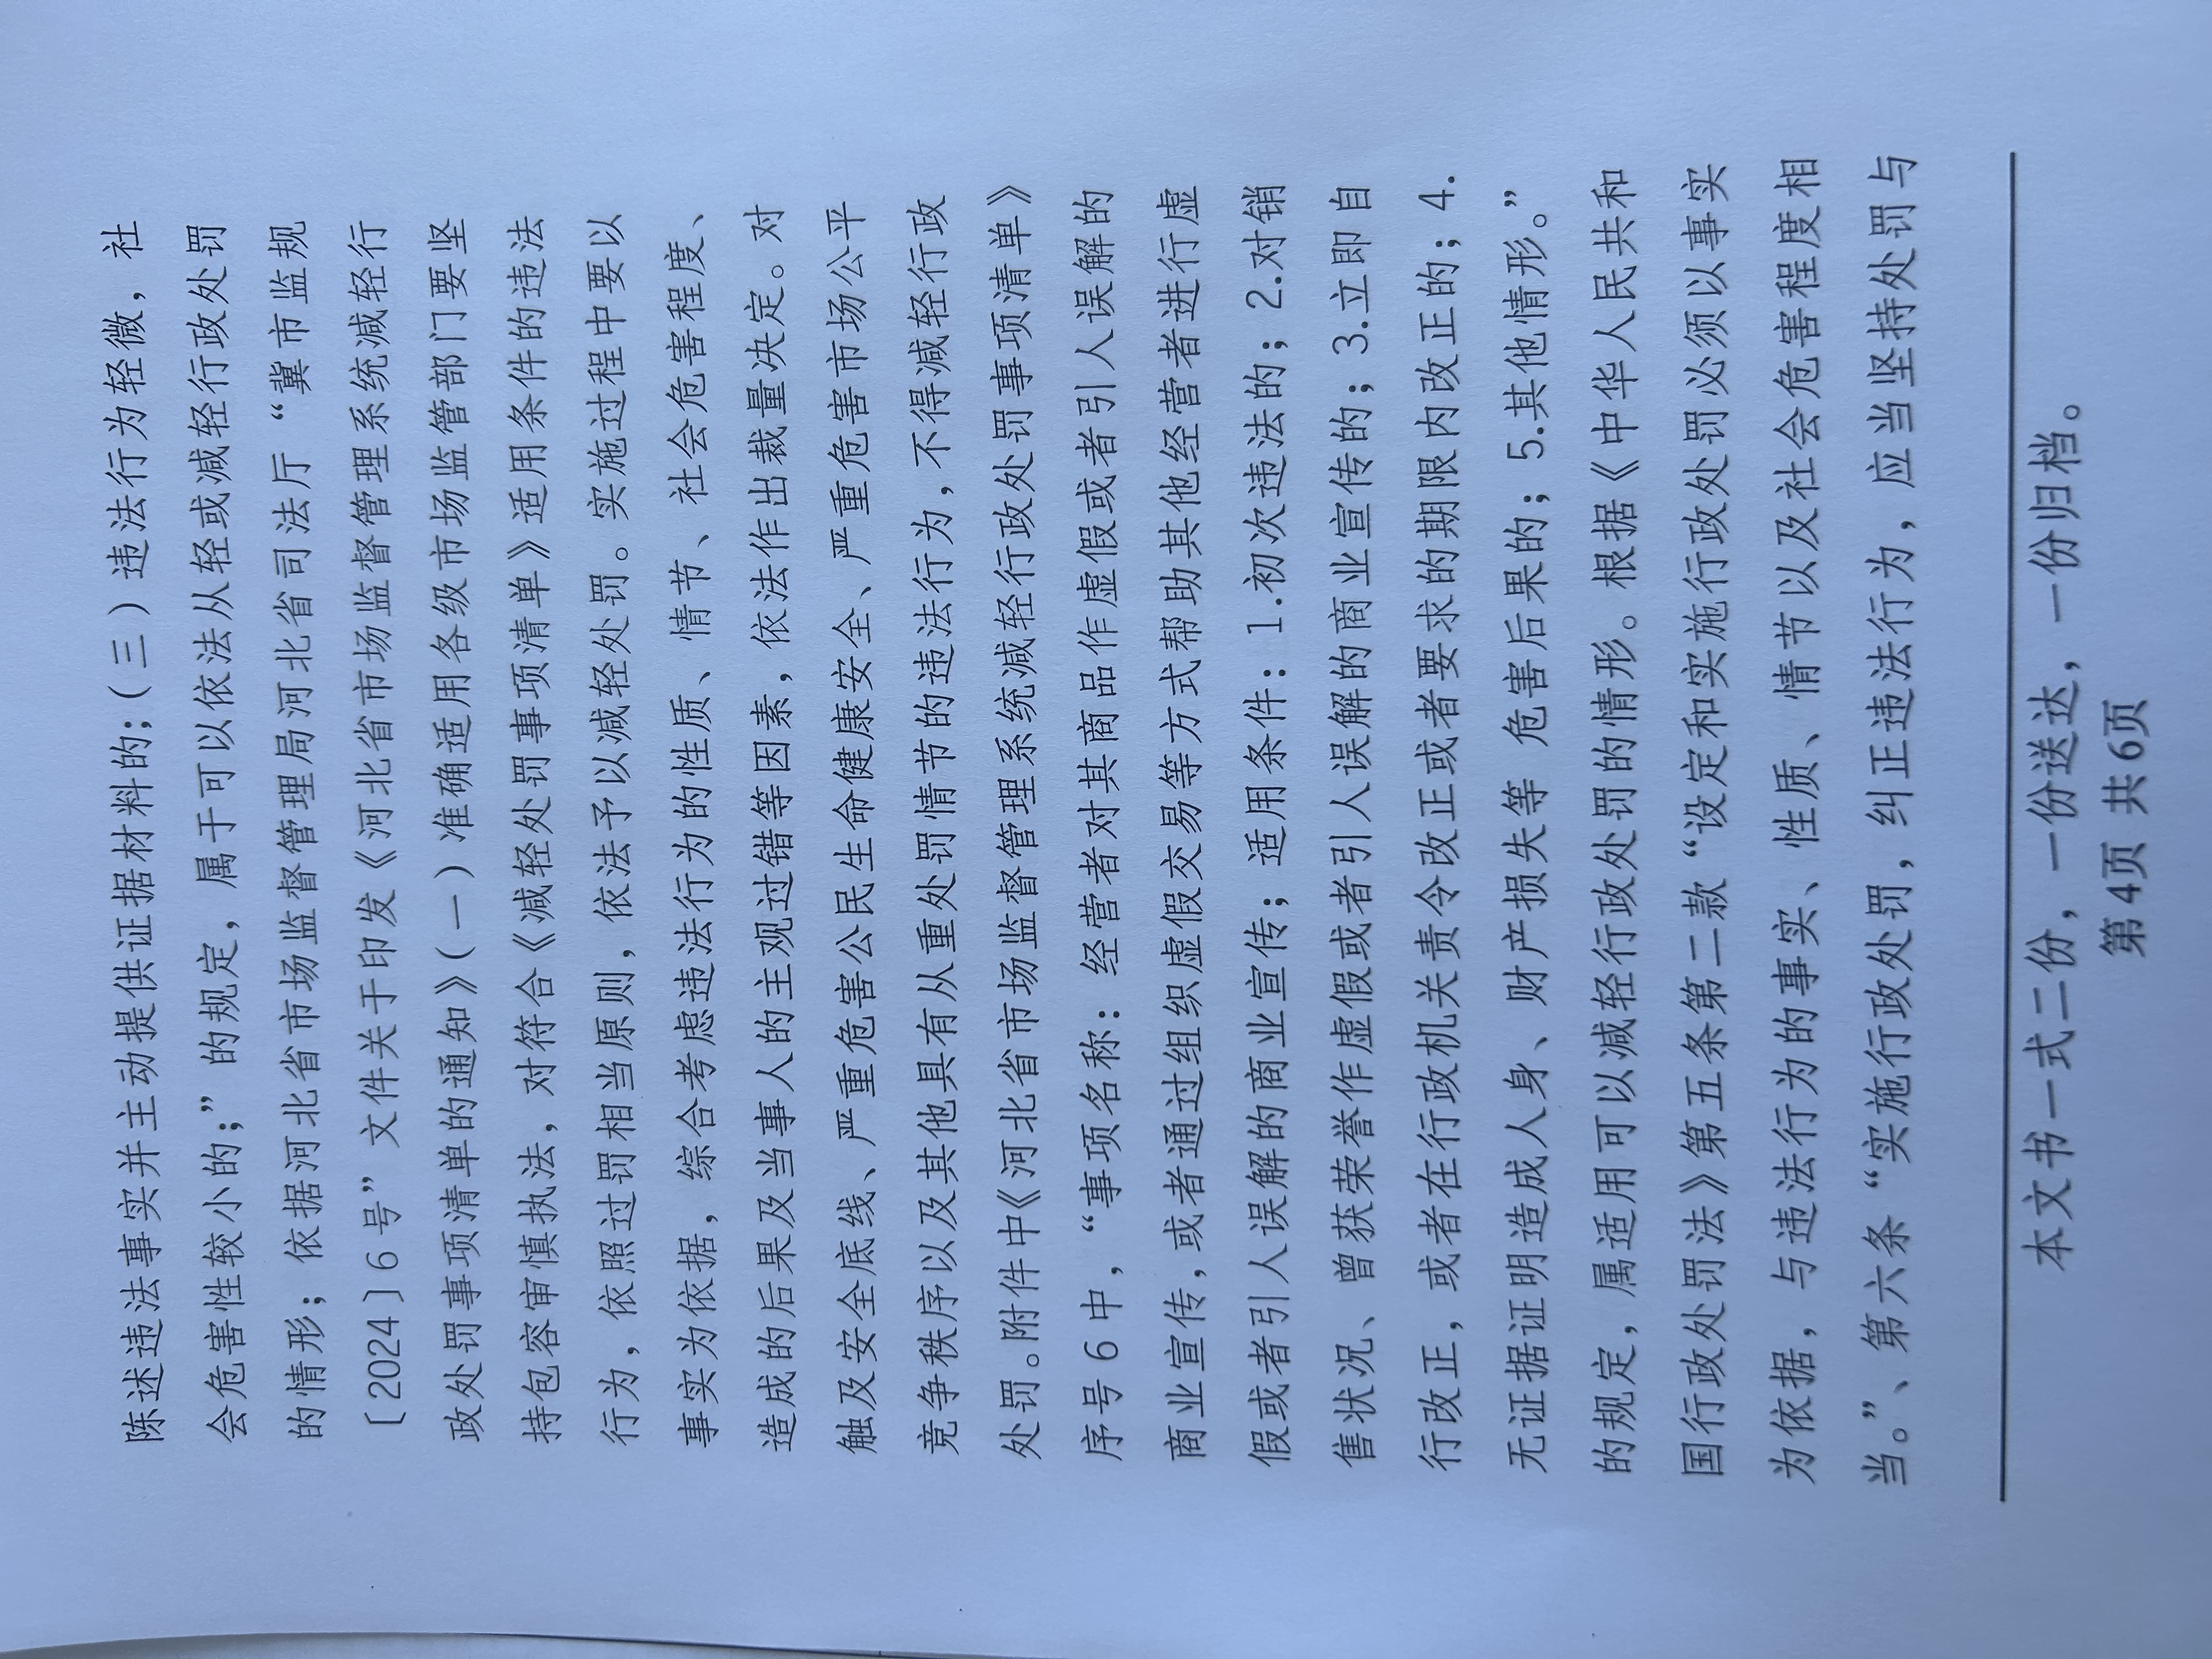 陈述违法事实并主动提供证据材料的;(三)违法行为轻微，社
会危害性较小的;”的规定，属于可以依法从轻或减轻行政处罚
的情形；依据河北省市场监督管理局河北省司法厅“冀市监规
〔2024〕6号”文件关于印发《河北省市场监督管理系统减轻行
政处罚事项清单的通知》(一)准确适用各级市场监管部门要坚
持包容审慎执法，对符合《减轻处罚事项清单》适用条件的违法
行为，依照过罚相当原则，依法予以减轻处罚。实施过程中要以
事实为依据，综合考虑违法行为的性质、情节、社会危害程度、
造成的后果及当事人的主观过错等因素，依法作出裁量决定。对
触及安全底线、严重危害公民生命健康安全、严重危害市场公平
竞争秩序以及其他具有从重处罚情节的违法行为，不得减轻行政
处罚。附件中《河北省市场监督管理系统减轻行政处罚事项清单》
序号6中，“事项名称：经营者对其商品作虚假或者引人误解的
商业宣传，或者通过组织虚假交易等方式帮助其他经营者进行虚
假或者引人误解的商业宣传；适用条件：1.初次违法的；2.对销
售状况、曾获荣誉作虚假或者引人误解的商业宣传的；3.立即自
行改正，或者在行政机关责令改正或者要求的期限内改正的；4.
无证据证明造成人身、财产损失等 危害后果的；5.其他情形。”
的规定，属适用可以减轻行政处罚的情形。根据《中华人民共和
国行政处罚法》第五条第二款“设定和实施行政处罚必须以事实
为依据，与违法行为的事实、性质、情节以及社会危害程度相
当。”、第六条“实施行政处罚，纠正违法行为，应当坚持处罚与
本文书一式二份，一份送达，一份归档。
第4页 共6页